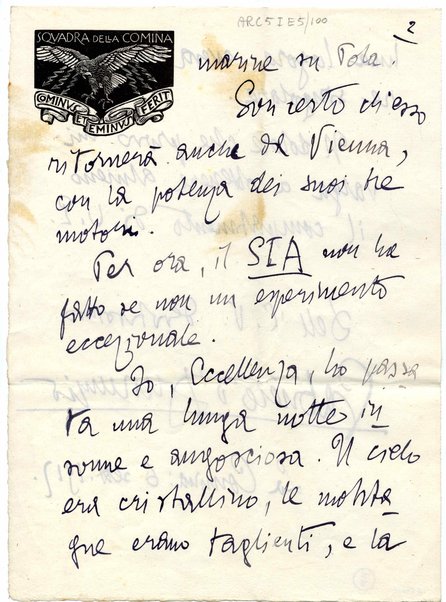 ARC5 I E5/100
2
SQVADRA DELLA COMINA
COMINVS ET EMINVS FERIT
marine su Pola.
Son certo ch'esso
ritornerà anche da Vienna,
con la potenza dei suoi tre
motori.
Per ora, il SIA non ha
fatto se non un esperimento
eccezionale.
Io, Eccellenza, ho passa
ta una lunga notte in
sonne e angosciosa. Il cielo
era cristallino, le monta
gne erano taglienti, e la